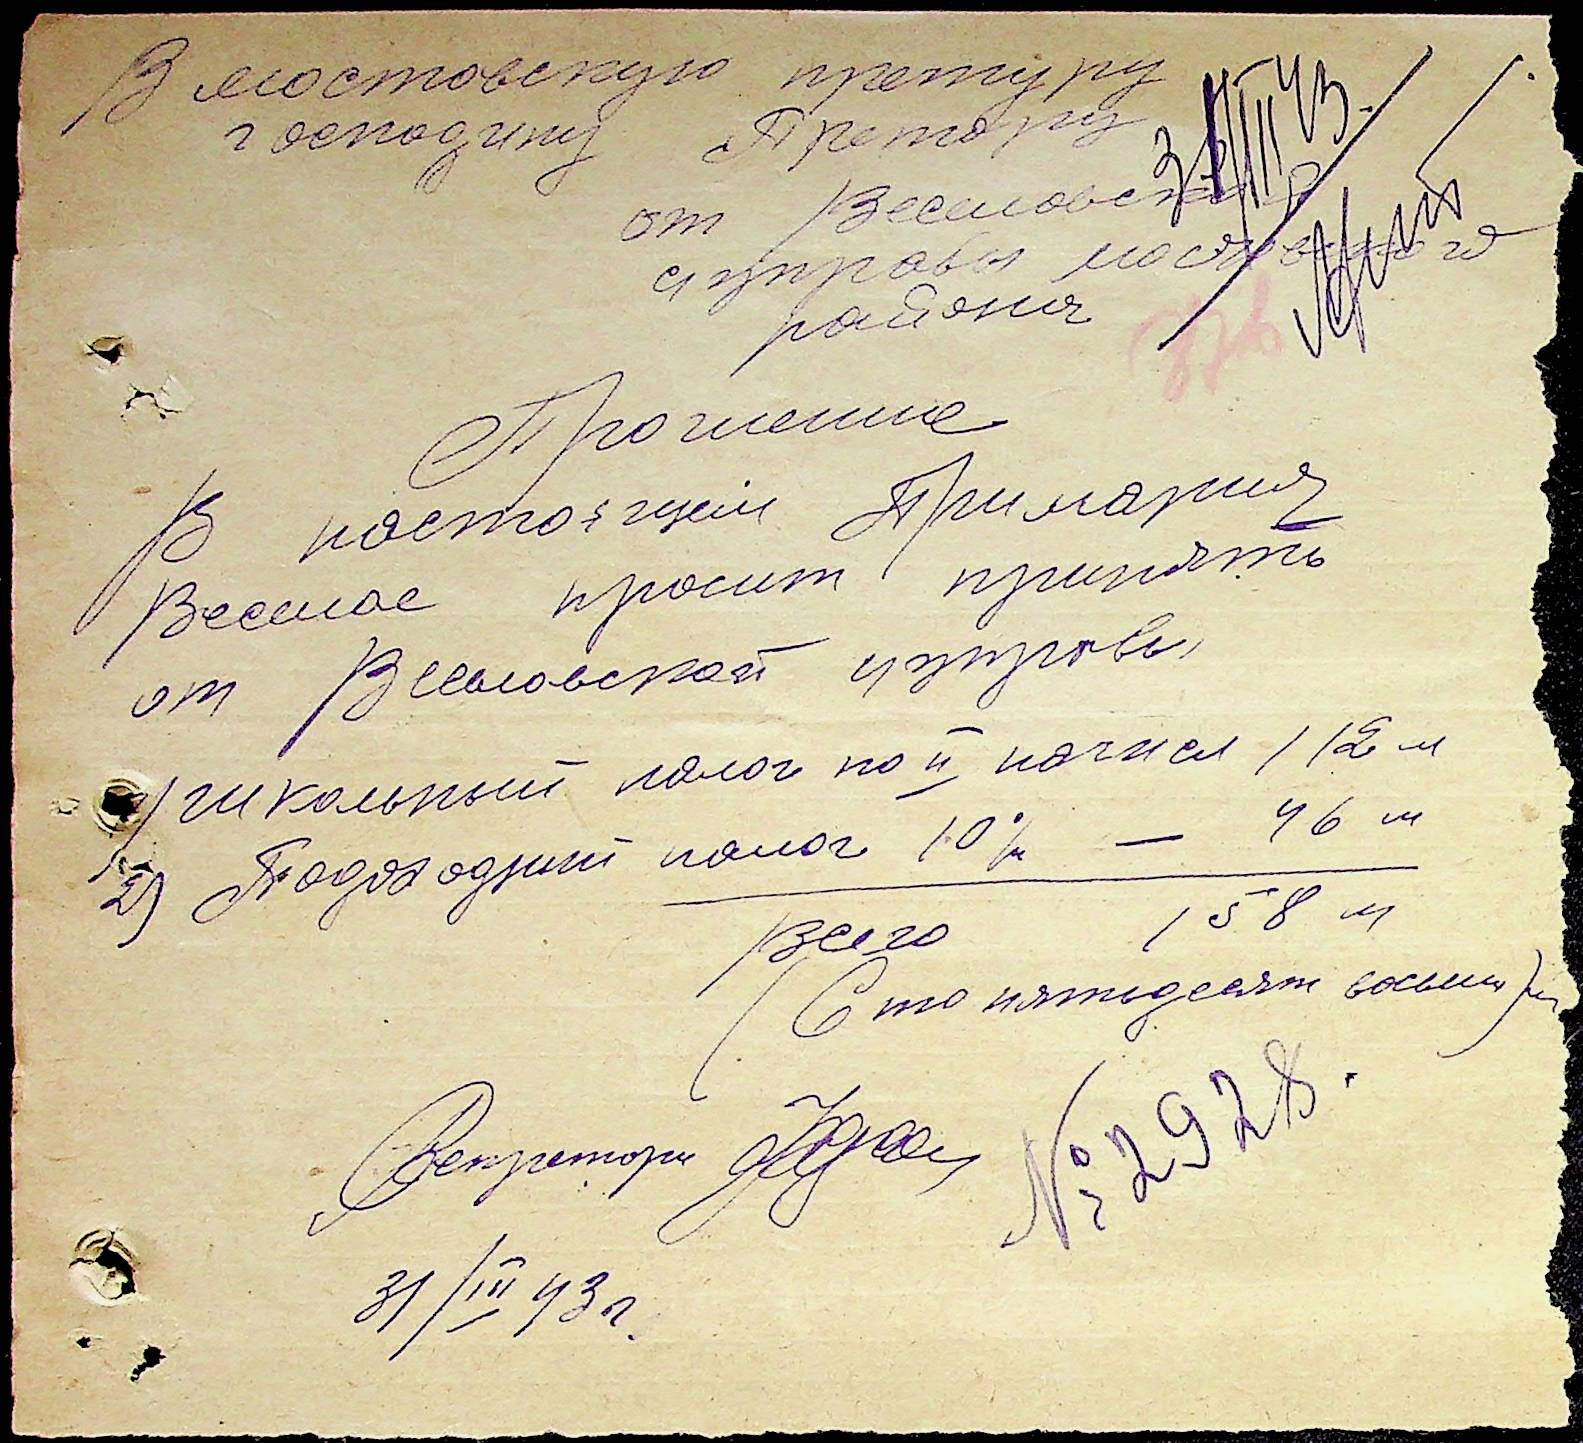 В мостовскую претуру
господину Претору
31/III 43.
от Веселовской
управы мостовского
района
Прошение
В настоящем Примария
Веселое просит принять
от Веселовской управы
1) школьный налог по II начисл 112 м
2) Подоходный налог 10% — 46 м
Всего 158 м
(Сто пятьдесят восемь) м
Секретарь
№ 2928.
31/III 43 г.